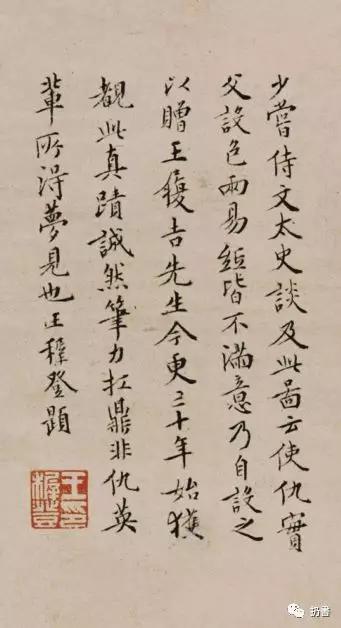 少嘗侍文太史談及此圖云使仇實
父設色兩易絹皆不滿意乃自設之
以贈王履吉先生今更三十年始獲
覩此真蹟誠然筆力扛鼎非仇英
輩所得夢見也王穉登題
王穉登印
扔書